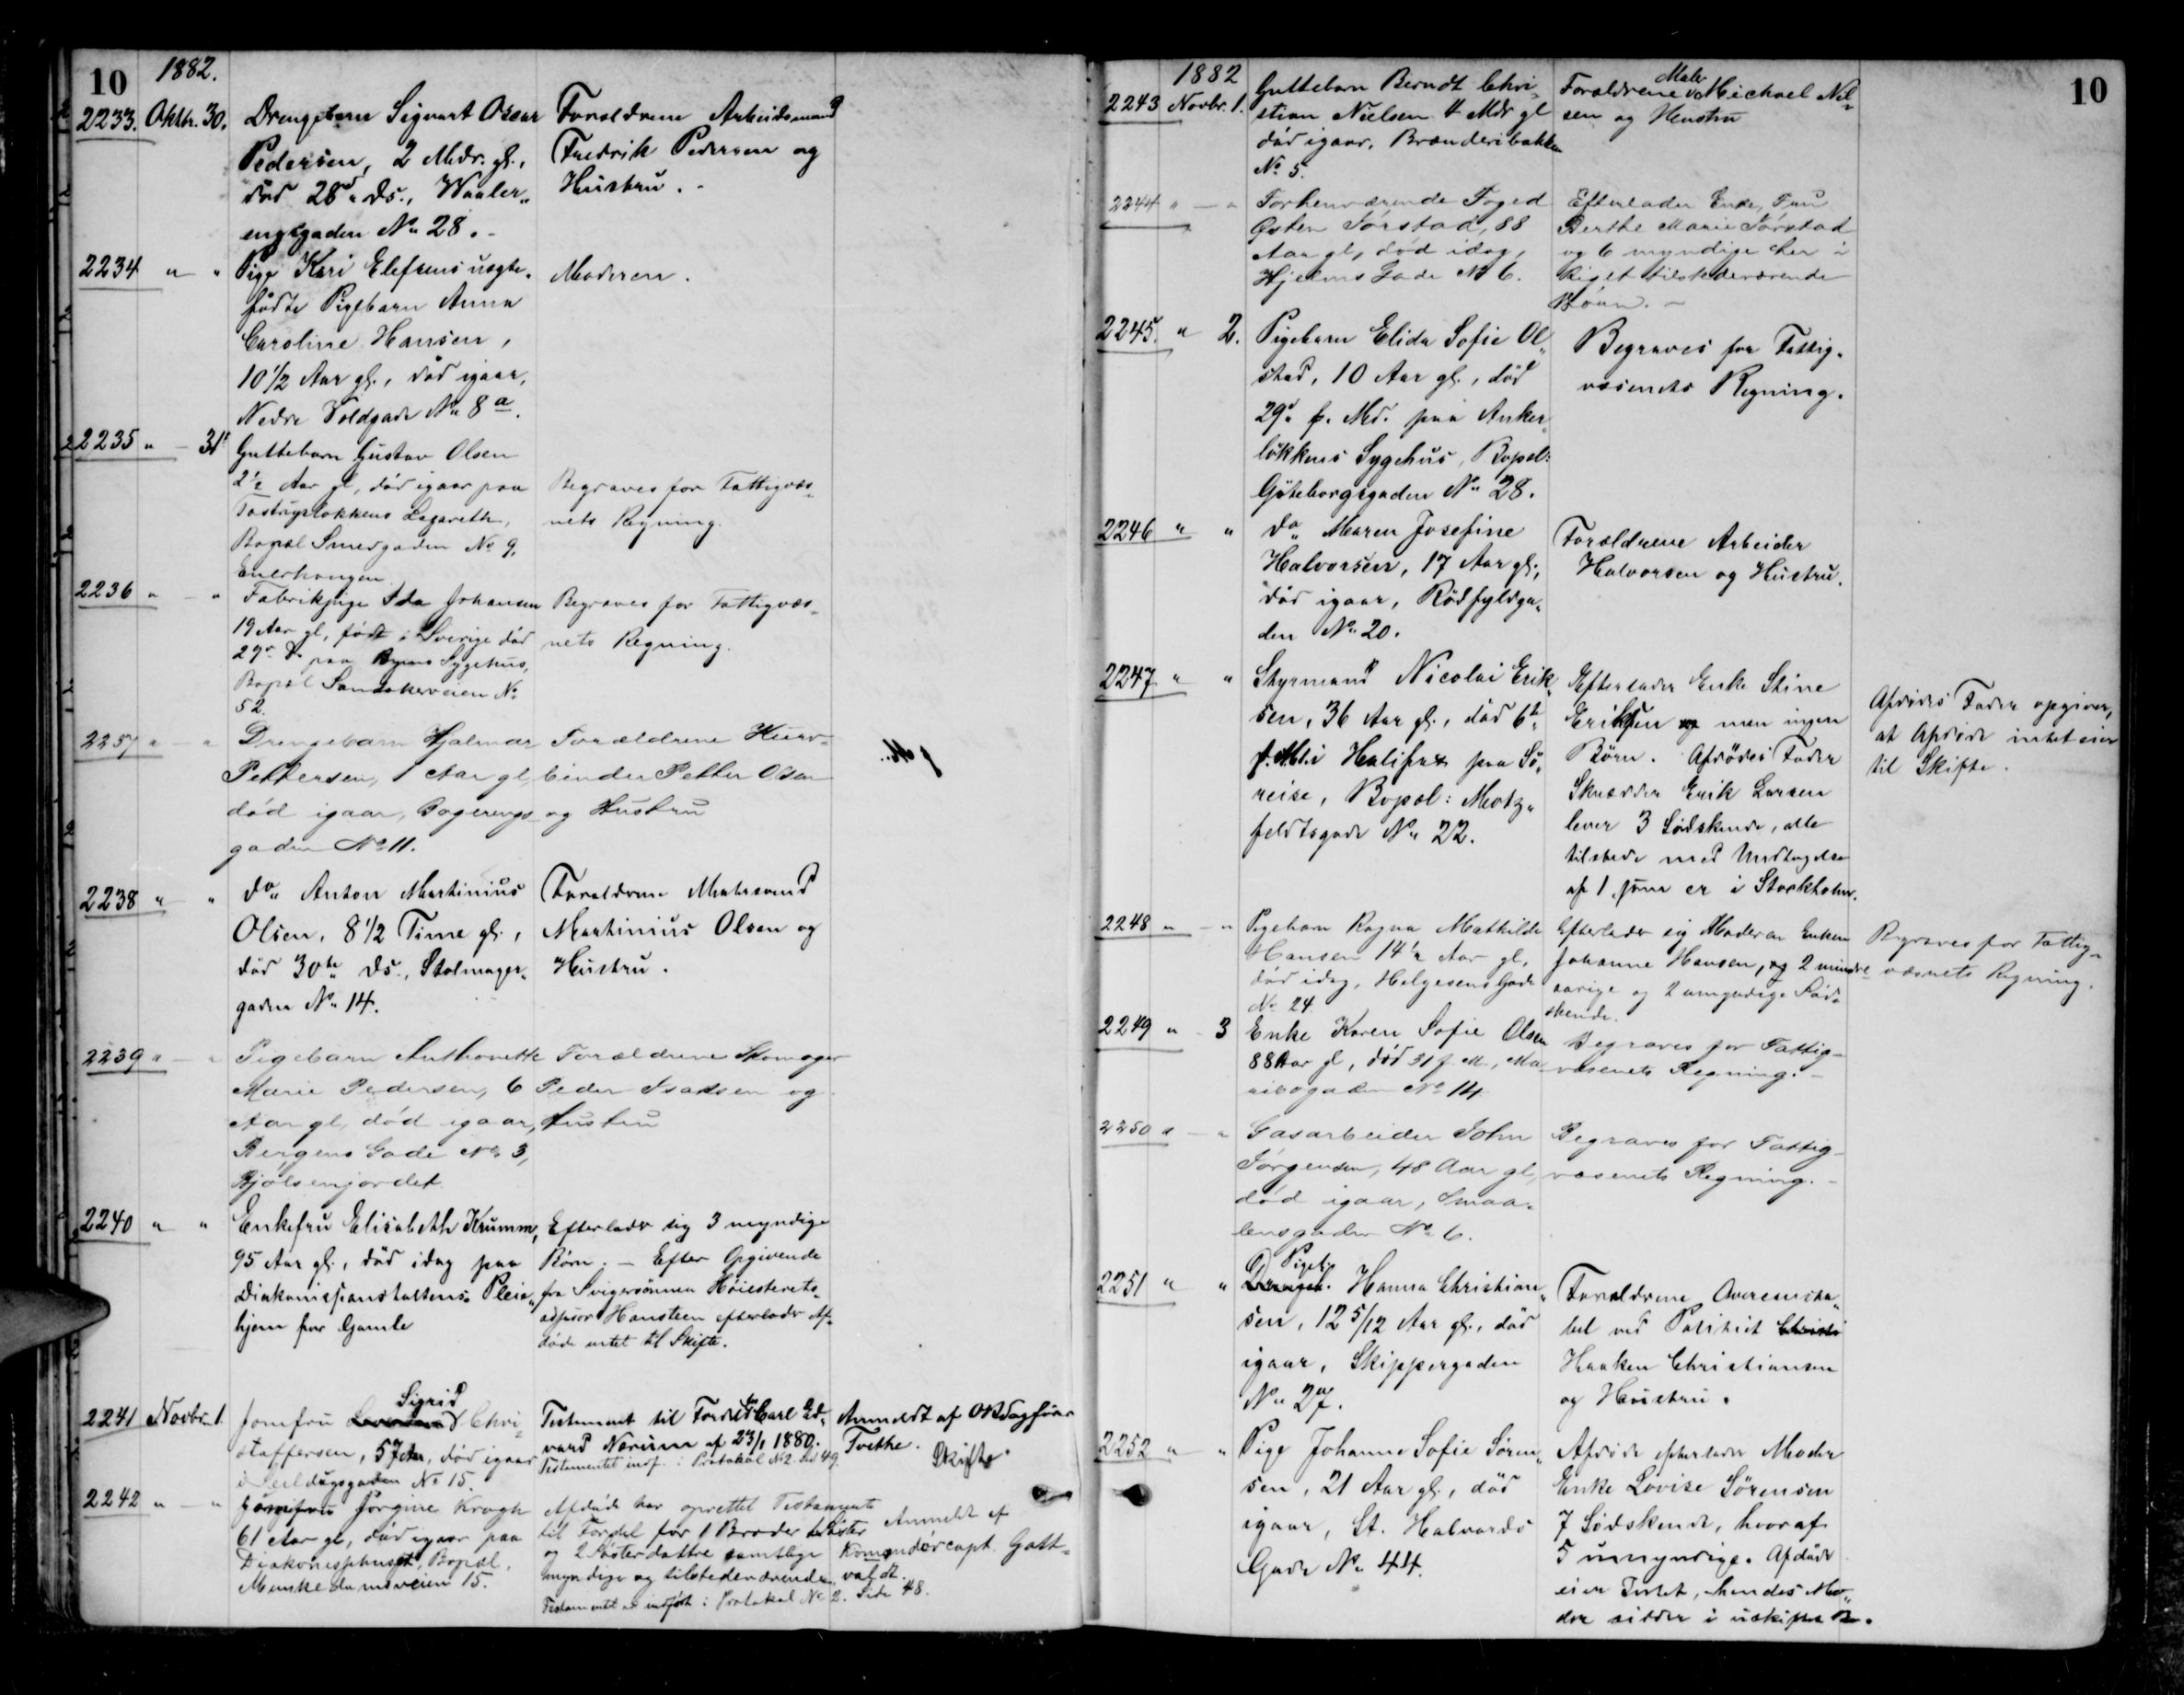 10
1882.
2233. Oktbr. 30. Drengebarn Sigvart Oscar
Pedersen, 2 Mdr. gl.,
død 28d. ds., Waaler„
engsgaden No. 28.
Forældrene Arbeidsmand
Fredrik Pedersen og
Hustru.
2234 " " Pige Kari Elefsens uægte„
fødte Pigebarn Anna
Caroline Hansen,
10 1/2 Aar gl., død igaar,
Nedre Voldgade No. 8a.
Moderen.
2235 " - 31 Guttebarn Gustav Olsen
2 1/2 Aar gl, død igaar paa
Lazareth,
Bopæl Smedgaden No 9,
Enerhaugen
Begraves for Fattigvæs„
nets Regning.
2236 " - " Fabrikpige Ida Johansen
19 Aar gl, født i Sverige død
29de ds paa Byens Sygehus,
Bopæl Sandakerveien No
52.
Begraves for Fattigvæs„
nets Regning.
2237 " - " Drengebarn Hjalmar
Pettersen, 1 Aar gl,
død igaar,
gaden No 11.
Forældrene Huus„
binder Petter Olsen
og Hustru
2238 " " do. Anton Martinius
Olsen, 8 1/2 Time gl.,
død 30te ds., Stolmager„
gaden No. 14.
Forældrene Matrand
Martinius Olsen og
Hustru.
2239 " - " Pigebarn Anthonette
Marie Pedersen, 6
Aar gl, død igaar,
Bergens Gade No 3,
Bjølsenjordet
Forældrene Skomager
Peder Isaksen og
Hustru
2240 " " Enkefru Elisabeth Krumm,
95 Aar gl., død idag paa
Diakonisseanstaltens Pleie„
hjem for Gamle
Efterlader sig 3 myndige
Børn. – Efter Opgivende
fra Svigersønnen Høiesterets„
adsessor Hansteen efterlader Af„
døde intet til Skifte.
2241 Novbr. 1. Jomfru Sigrid Chri„
stoffersen, 57 Aar, død igaar
i Seildugsgaden No 15.
Testament til Fordel for Carl Ed„
vard Nærum af 23/1 1880.
Testamentet indf. i Protokol No 2. Side 49
Anmeldt af ORSagfører
Tvethe.
Skifte.
2242 " - " Jomfru Jørgine Krogh
61 Aar gl, død igaar paa
Diakonissehuset, Bopæl,
Munkedamsveien 15.
Afdøde har oprettet Testamente
til Fordel for 1 Broder 1 Søster
og 2 Søsterdøttre samtlige
myndige og tilstedeværende
Testamentet er indført i Protokol No 2. Side 48.
Anmeldt af
Komandørcapt. Gott„
valdt.
10
1882
2243 Novbr. 1. Guttebarn Berndt Chri„
stian Nielsen 4 Mdr gl
død igaar, Brænderibakken
No 5.
Forældrene Maler Michael Niel„
sen og Hustru
2244 " - " Forhenværende Foged
Østen Tørstad, 88
Aar gl, død idag,
Hjelms Gade No 6.
Efterlader Enke, Fru
Berthe Marie Tørstad
og 6 myndige her i
Riget tilstedeværende
Børn. –
2245. " 2. Pigebarn Elida Sofie Ol„
stad, 10 Aar gl., død
29d. f. Md. paa Anker„
løkkens Sygehus, Bopæl:
Göteborgsgaden No. 28.
Begraves for Fattig„
væsenets Regning.
2246 " " do. Maren Josefine
Halvorsen, 17 Aar gl.,
død igaar, Rødfyldga„
den No. 20.
Forældrene Arbeider
Halvorsen og Hustru.
2247 " " Styrmand Nicolai Erik„
sen, 36 Aar gl., død 6te
f. M. i Halifax paa Sø„
reise, Bopæl: Motz„
feldtsgade No. 22.
Efterlader Enke Stine
Eriksen men ingen
Børn. Afdødes Fader
Skrædder Erik Larsen
lever 3 Sødskende, alle
tilstede med Undtagelse
af 1 som er i Stockholm.
Afdødes Fader opgiver,
at Afdøde intet eier
til Skifte.
2248 " - " Pigebarn Ragna Mathilde
Hansen 14 1/2 Aar gl,
død idag, Helgesens Gade
No 24
Efterlader sig Moderen Enken
Johanne Hansen, og 2 mindre„
aarige og 2 umyndige Sød„
skende.
Begraves for Fattig„
væsnets Regning.
2249 " - 3 Enke Karen Sofie Olsen
88 Aar gl, død 31 f. M., Ma„
ribogaden No 14
Begraves for Fattig„
væsenets Regning. –
2250 " - " Gasarbeider John
Jørgensen, 48 Aar gl,
død igaar, Smaa„
lensgaden No 6.
Begraves for Fattig„
væsenets Regning. –
2251 " " Drengeb. Pigeb. Hanna Christian„
sen, 12 5/12 Aar gl., død
igaar, Skippergaden
No. 27.
Forældrene Overconsta„
bel ved Politiet Christi
Haaken Christiansen
og Hustru.
2252 " " Pige Johanne Sofie Søren„
sen, 21 Aar gl., død
igaar, St. Halvards
Gade No. 44.
Afdøde efterlader Moder
Enke Lovise Sørensen
7 Sødskende, hvoraf
5 umyndige. Afdøde
eier Intet, hendes Mo„
der sidder i uskiftet Bo.